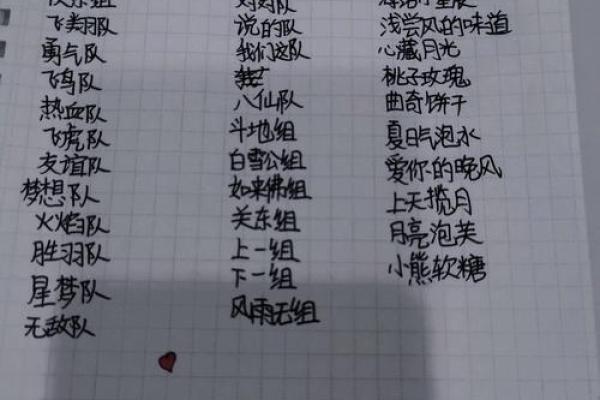 飞翔队
勇气队
飞鸟队
热血队
飞虎队
友谊队
梦想队
火焰队
胜羽队
星梦队
无敌队
说的队
我们这队
八仙队
斗地组
白雪公组
如来佛组
关东组
上一组
下一组
风雨无组
浅尝风的味道
心藏月光
桃子玫瑰
曲奇饼干
夏日气泡水
爱你的晚风
上天揽月
月亮泡芙
小熊软糖